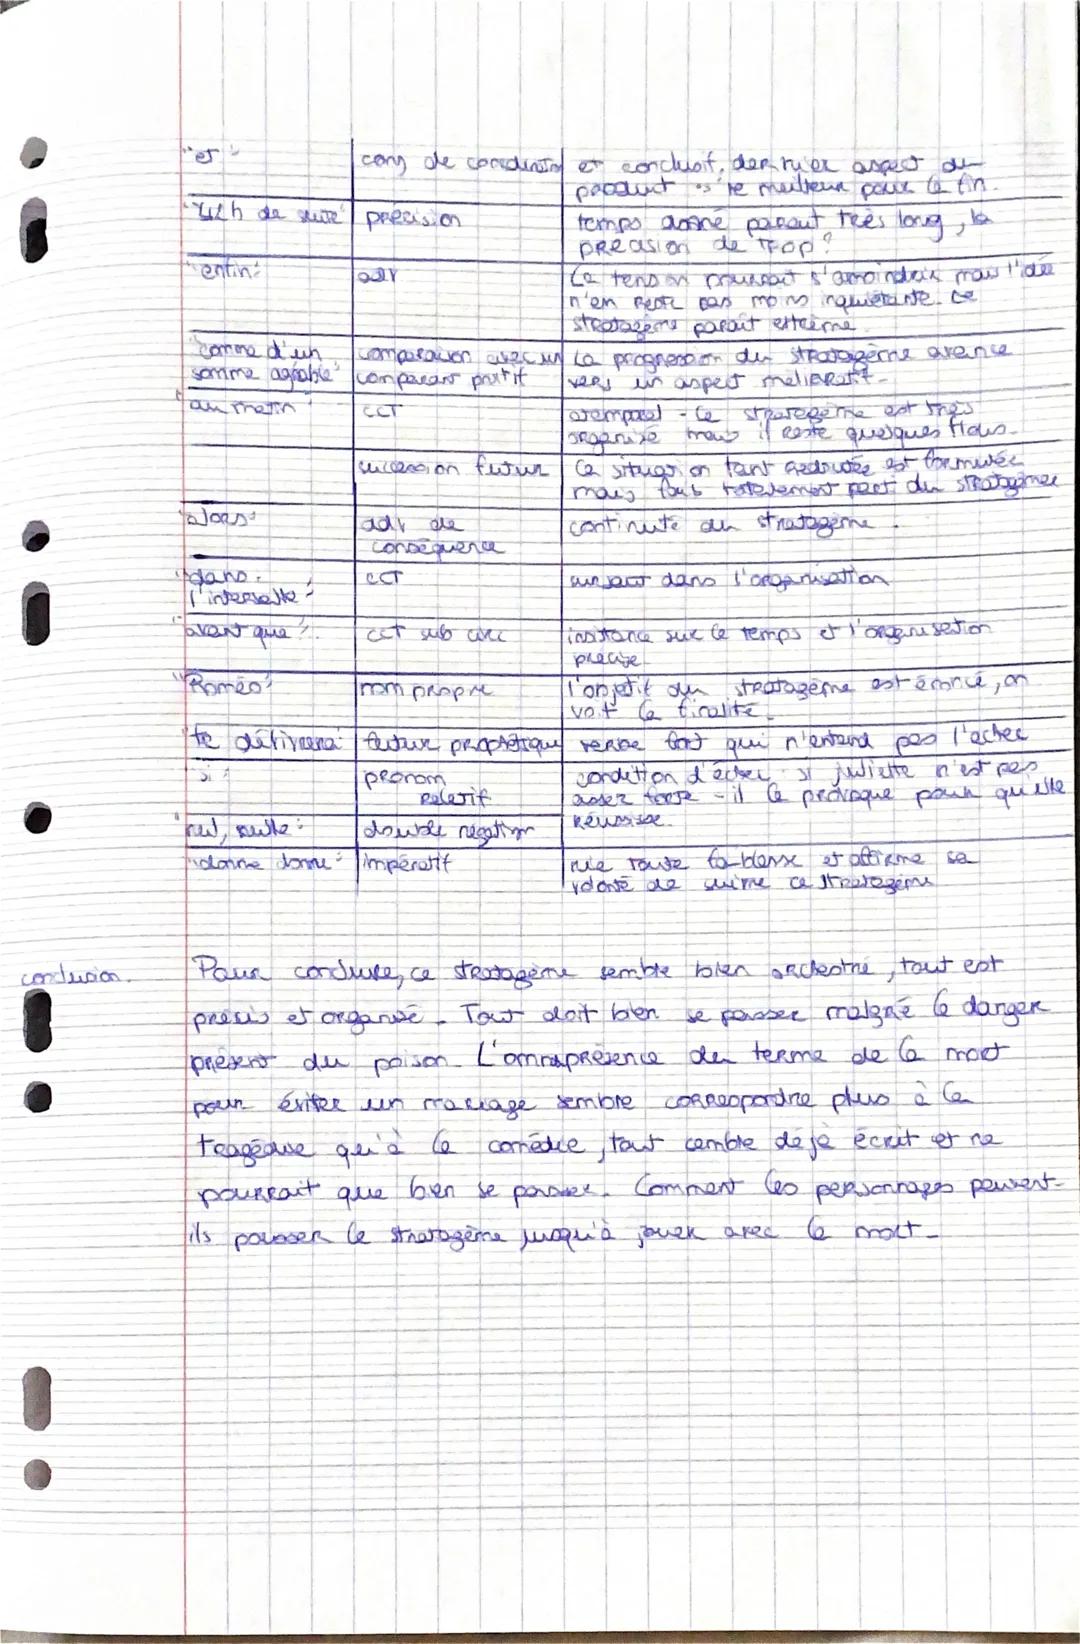 "et" conj de coordination et conclusif, dernier aspect du
produit is le meilleur pour la fin.
"42h de suite" précision temps donné parait très long, la
précision de trop?
"enfin" adv La tension pourrait s'amoindrir mais l'idée
n'en reste pas moins inquiétante. Le
stratagème parait extrême.
"comme d'un comparaison avec un La progression du stratagème avance
somme agréable" comparant positif vers un aspect mélioratif.
"au matin" CCT atemporel - Le stratégème est très
organisé mais il reste quelques flous.
succession futur La situation tant redoutée est formulée
mais fais totalement parti du stratagème
"alors" adv de continuité du stratagème.
conséquence
"dans CCT dans l'organisation
l'intervalle"
"avant que" CCT sub circ insistance sur le temps et l'organisation
précise
"Roméo" nom propre l'objetif du stratagème est énoncé, on
voit la finalité.
"te délivrera" futur prophétique verbe fort qui n'entend pas l'échec
"si" pronom condition d'échec si juliette n'est pas
relatif assez forte - il la provoque pour qu'elle
réussisse.
"nul, nulle" double négation
"donne donne" impératif nie toute faiblesse et affirme sa
volonté de suivre ce stratagème
conclusion. Pour conclure, ce stratagème semble bien orchestré, tout est
précis et organisé. Tout doit bien se passer malgré le danger
présent du poison. L'omniprésence du terme de la mort
pour éviter un mariage semble correspondre plus à la
tragédie qu'à la comédie, tout semble déjà écrit et ne
pourrait que bien se passer. Comment les personnages peuvent-
ils pousser le stratagème jusqu'à jouer avec la mort.